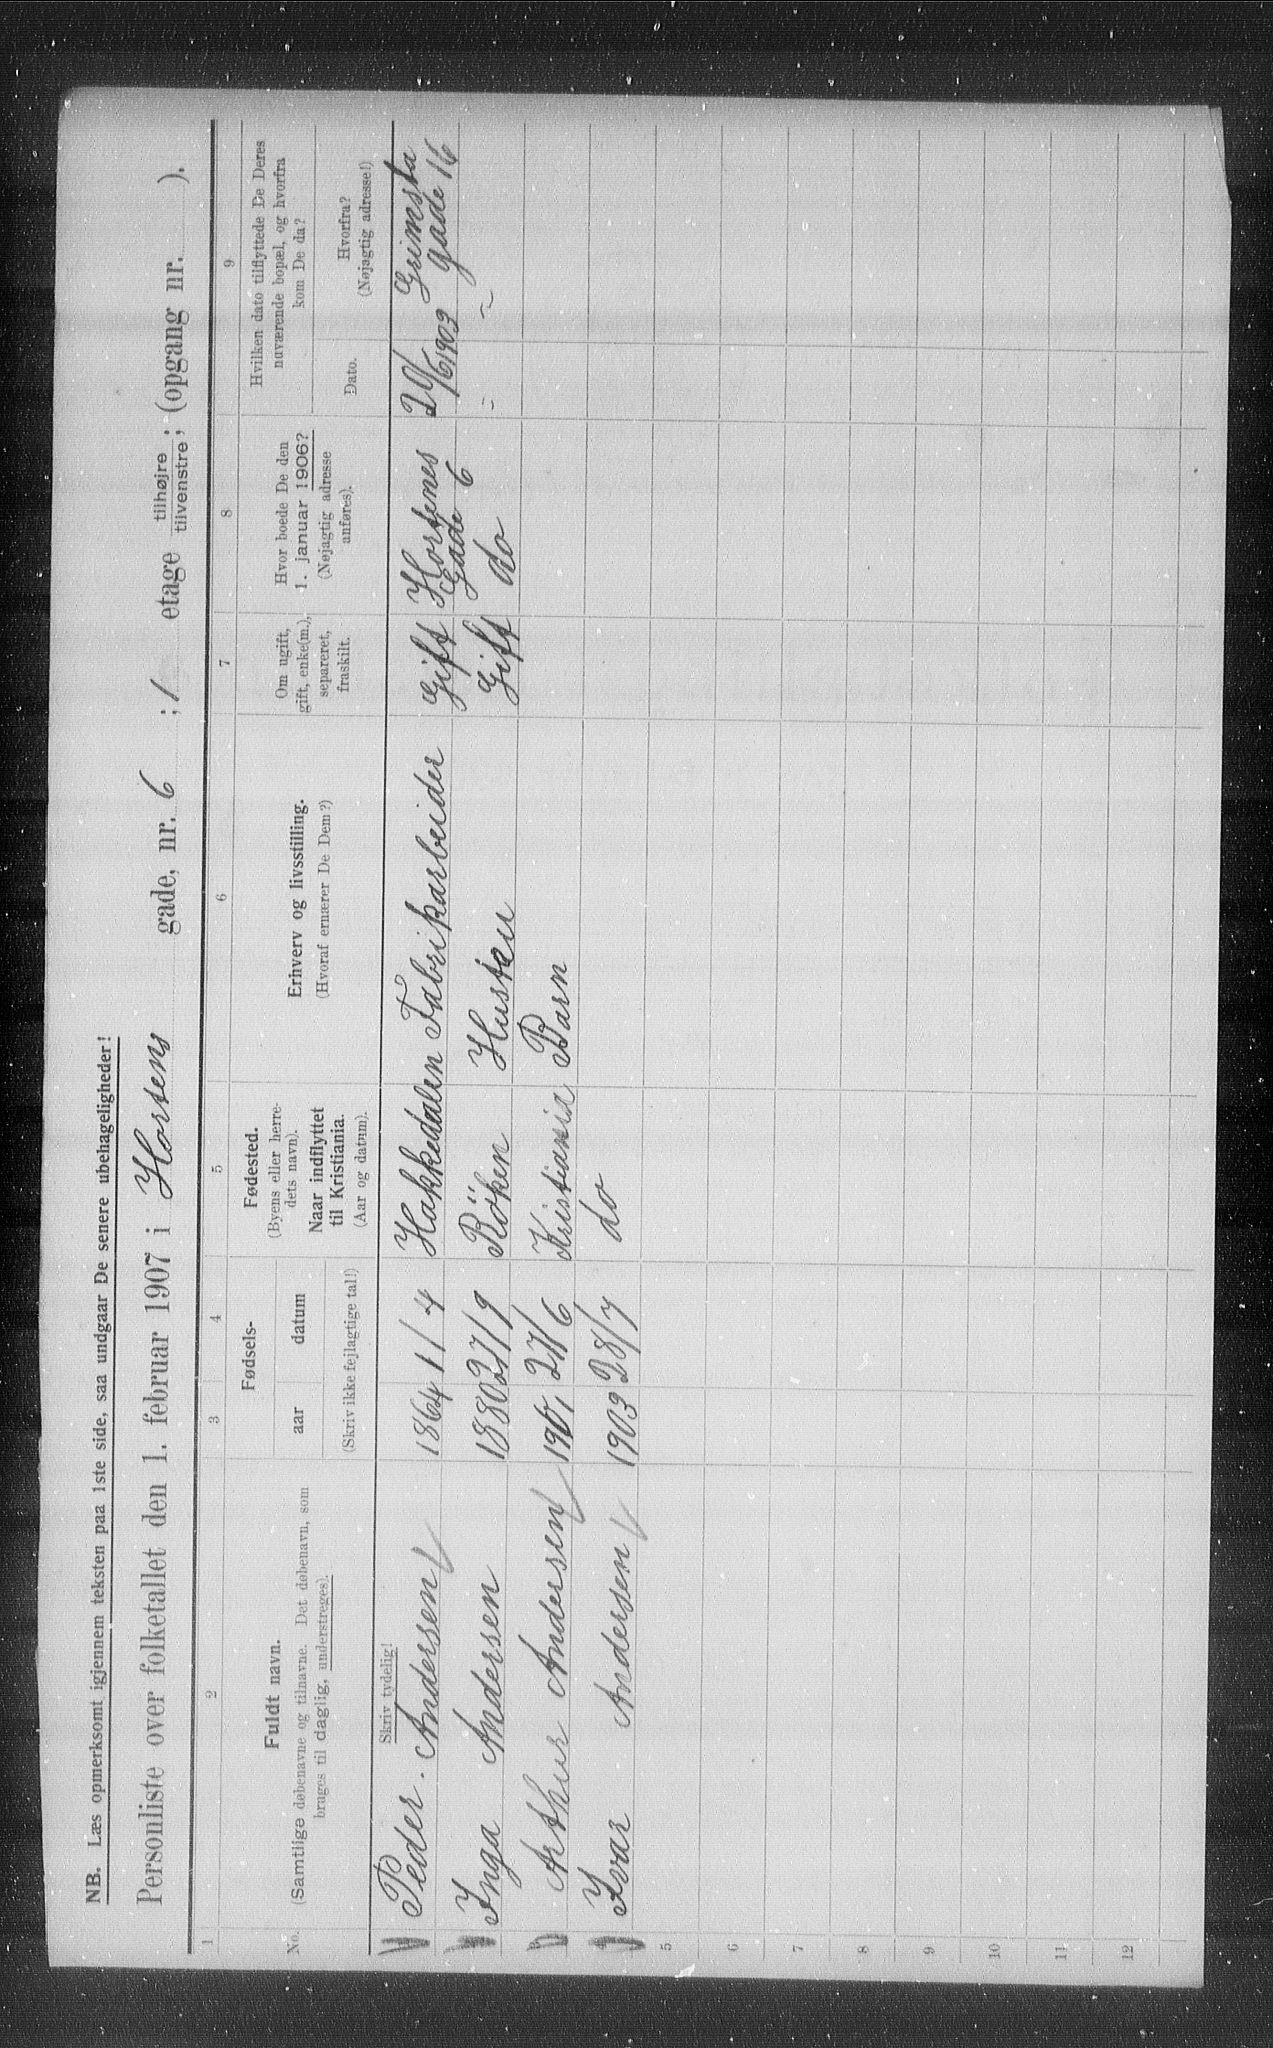 NB. Læs opmerksomt igjennem teksten paa 1ste side, saa undgaar De senere ubehageligheder!
Personliste over folketallet den 1. februar 1907 i Hortens gade, nr. 6 ; 1 etage tilhøjre tilvenstre; (opgang nr. ).
1 2 3 4 5 6 7 8 9
No.
Fuldt navn.
(Samtlige døbenavne og tilnavne. Det døbenavn, som
brages til daglig, understreges).
Fødsels-
aar datum
(Skriv ikke fejlagtige tal!)
Fødested.
(Byens eller herre-
dets navn).
Naar indflyttet
til Kristiania.
(Aar og datum).
Erhverv og livsstilling.
(Hvoraf ernærer De Dem?)
Om ugift,
gift, enke(m.),
separeret,
fraskilt.
Hvor boede De den
1. januar 1906?
(Nøjagtig adresse
anføres).
Hvilken dato tilflyttede De Deres
nuværende bopæl, og hvorfra
kom De da?
Dato.
Hvorfra?
(Nøjagtig adresse!)
Skriv tydelig!
Peder. Andersen 1864 1/4 Hakkedalen Fabrikarbeider Gift Hortenes Gade 6 20/6 1903 Grimsta gade 16
Inga Andersen 1880 27/9 Röken Husteu Gift do " "
Arthur Andersen 1901, 27/6 Kristiania Barn
Ivar Andersen 1903 28/7 do
5
6
7
8
9
10
11
12